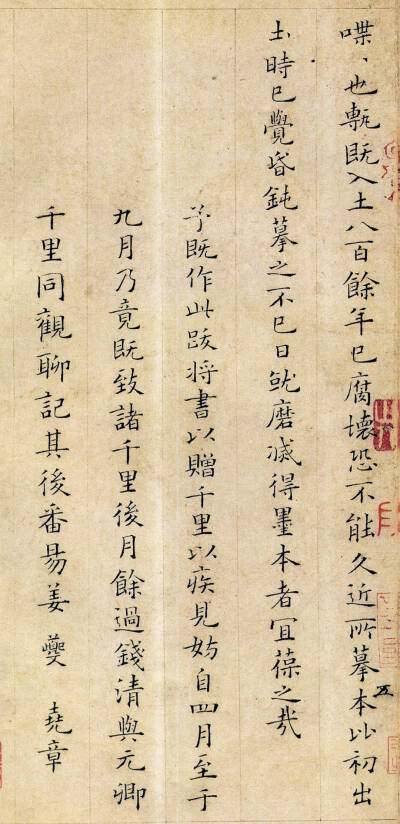 喋〻也甎既入土八百餘年已腐壞恐不能久近所摹本比初出
五
土時已覺昏鈍摹之不已日就磨滅得墨本者宜葆之哉
予既作此跋將書以贈千里以疾見妨自四月至于
九月乃竟既致諸千里後月餘過錢清與元卿
千里同觀聊記其後番昜姜夔 堯章